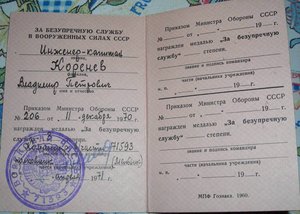 ЗА БЕЗУПРЕЧНУЮ СЛУЖБУ
В ВООРУЖЕННЫХ СИЛАХ СССР
Инженер-капитан
Коренев
фамилия,
Владимир Петрович
имя и отчество
Приказом Министра Обороны СССР
№ 206 от "11" декабря 1970 г.
награжден медалью „За безупречную
службу" степени.
71593
1971 г.
Приказом Министра Обороны СССР
№ от " " 19 г.
награжден медалью „За безупречную
службу" степени.
звание и подпись командира
части (начальника учреждения)
" " 19 г.
Приказом Министра Обороны СССР
№ от " " 19 г.
награжден медалью „За безупречную
службу" степени.
звание и подпись командира
части (начальника учреждения)
" " 19 г.
МПФ Гознака. 1960.